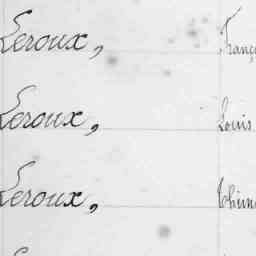 Leroux,
Leroux, Louis
Leroux,